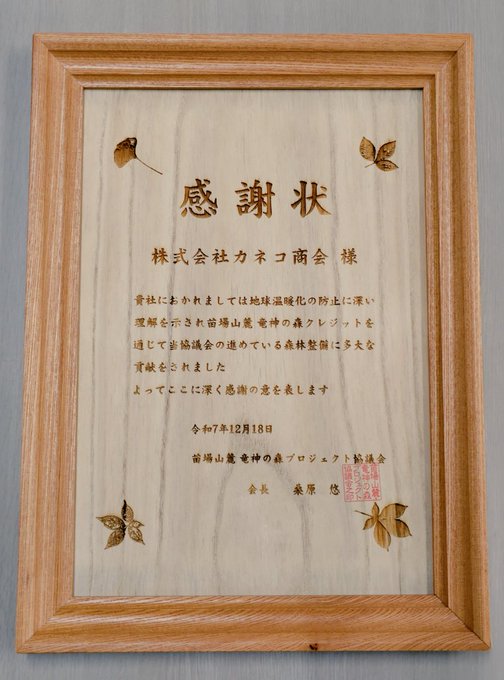 感謝状
株式会社カネコ商会 様
貴社におかれましては地球温暖化の防止に深い
理解を示され苗場山麓 竜神の森クレジットを
通じて当協議会の進めている森林整備に多大な
貢献をされました
よってここに深く感謝の意を表します
令和7年12月18日
苗場山麓 竜神の森プロジェクト協議会
会長 桑原 悠
苗場山麓
竜神の森
プロジェクト
協議会之印